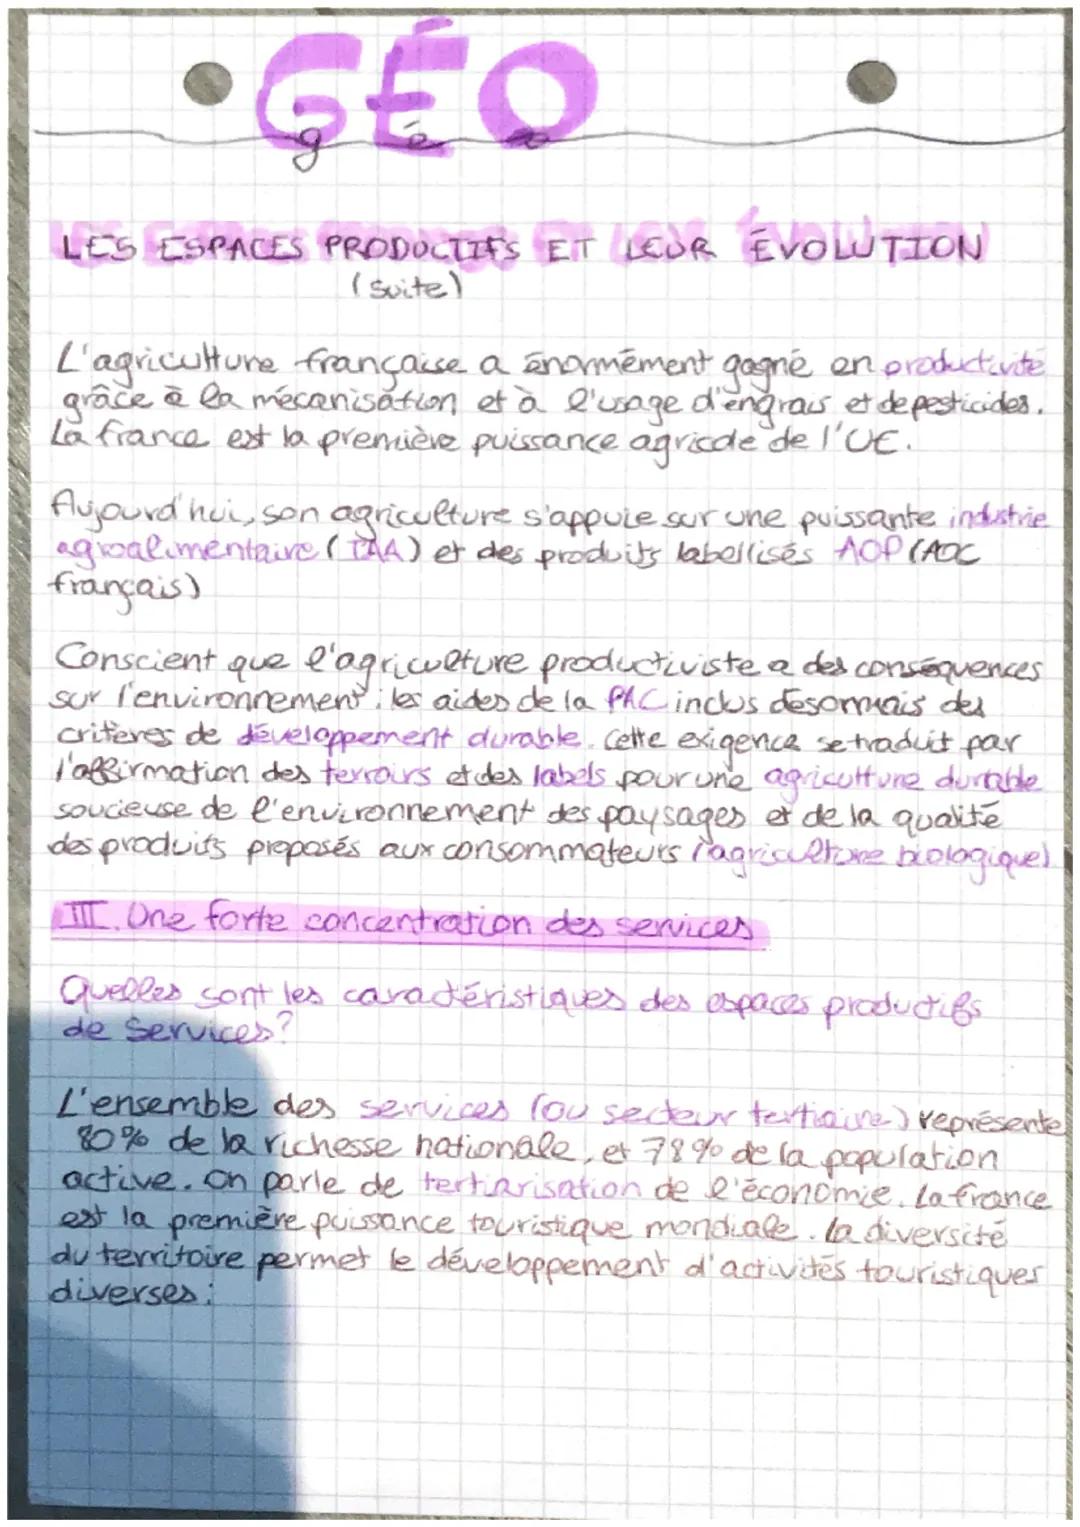 GÉO
géo
LES ESPACES PRODUCTIFS ET LEUR ÉVOLUTION
(suite)
L'agriculture française a énormément gagné en productivité
grâce à la mécanisation et à l'usage d'engrais et de pesticides.
La france est la première puissance agricole de l'UE.
Aujourd'hui, son agriculture s'appuie sur une puissante industrie
agroalimentaire (IAA) et des produits labellisés AOP (AOC
français)
Conscient que l'agriculture productiviste a des conséquences
sur l'environnement ; les aides de la PAC inclus désormais des
critères de développement durable. Cette exigence se traduit par
l'affirmation des terroirs et des labels pour une agriculture durable
soucieuse de l'environnement des paysages et de la qualité
des produits proposés aux consommateurs (agriculture biologique)
III. Une forte concentration des services
Quelles sont les caractéristiques des espaces productifs
de Services?
L'ensemble des services (ou secteur tertiaire) représente
80% de la richesse nationale, et 78% de la population
active. On parle de tertiarisation de l'économie. La france
est la première puissance touristique mondiale. La diversité
du territoire permet le développement d'activités touristiques
diverses :